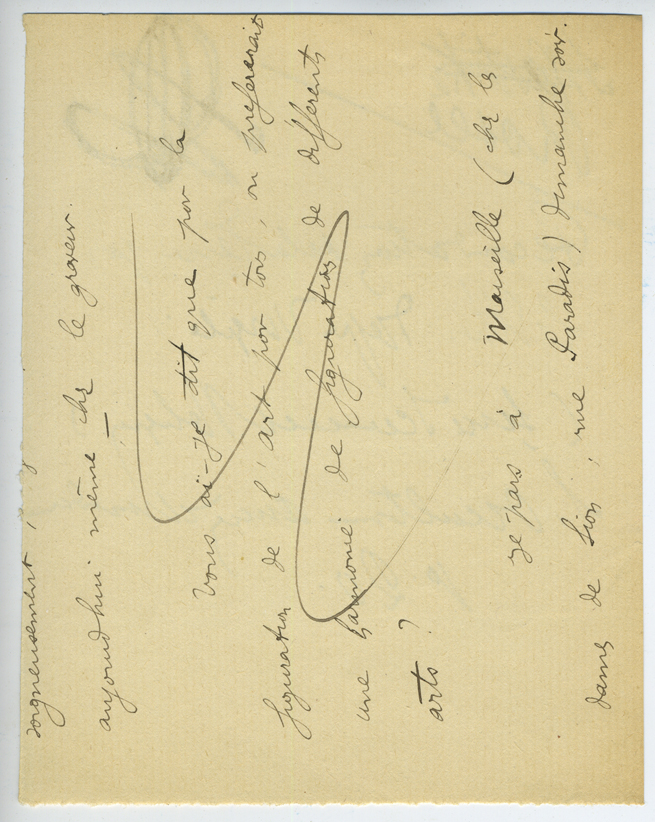 soigneusement,
aujourdhui même chz le graveur.
Vous ai-je dit que por la
figuration de l'art por tos, on prefererait
une harmonie de figurations de différents
arts?
Je pars à Marseille (chz les
dames de Sion, rue Paradis) dimanche soir.